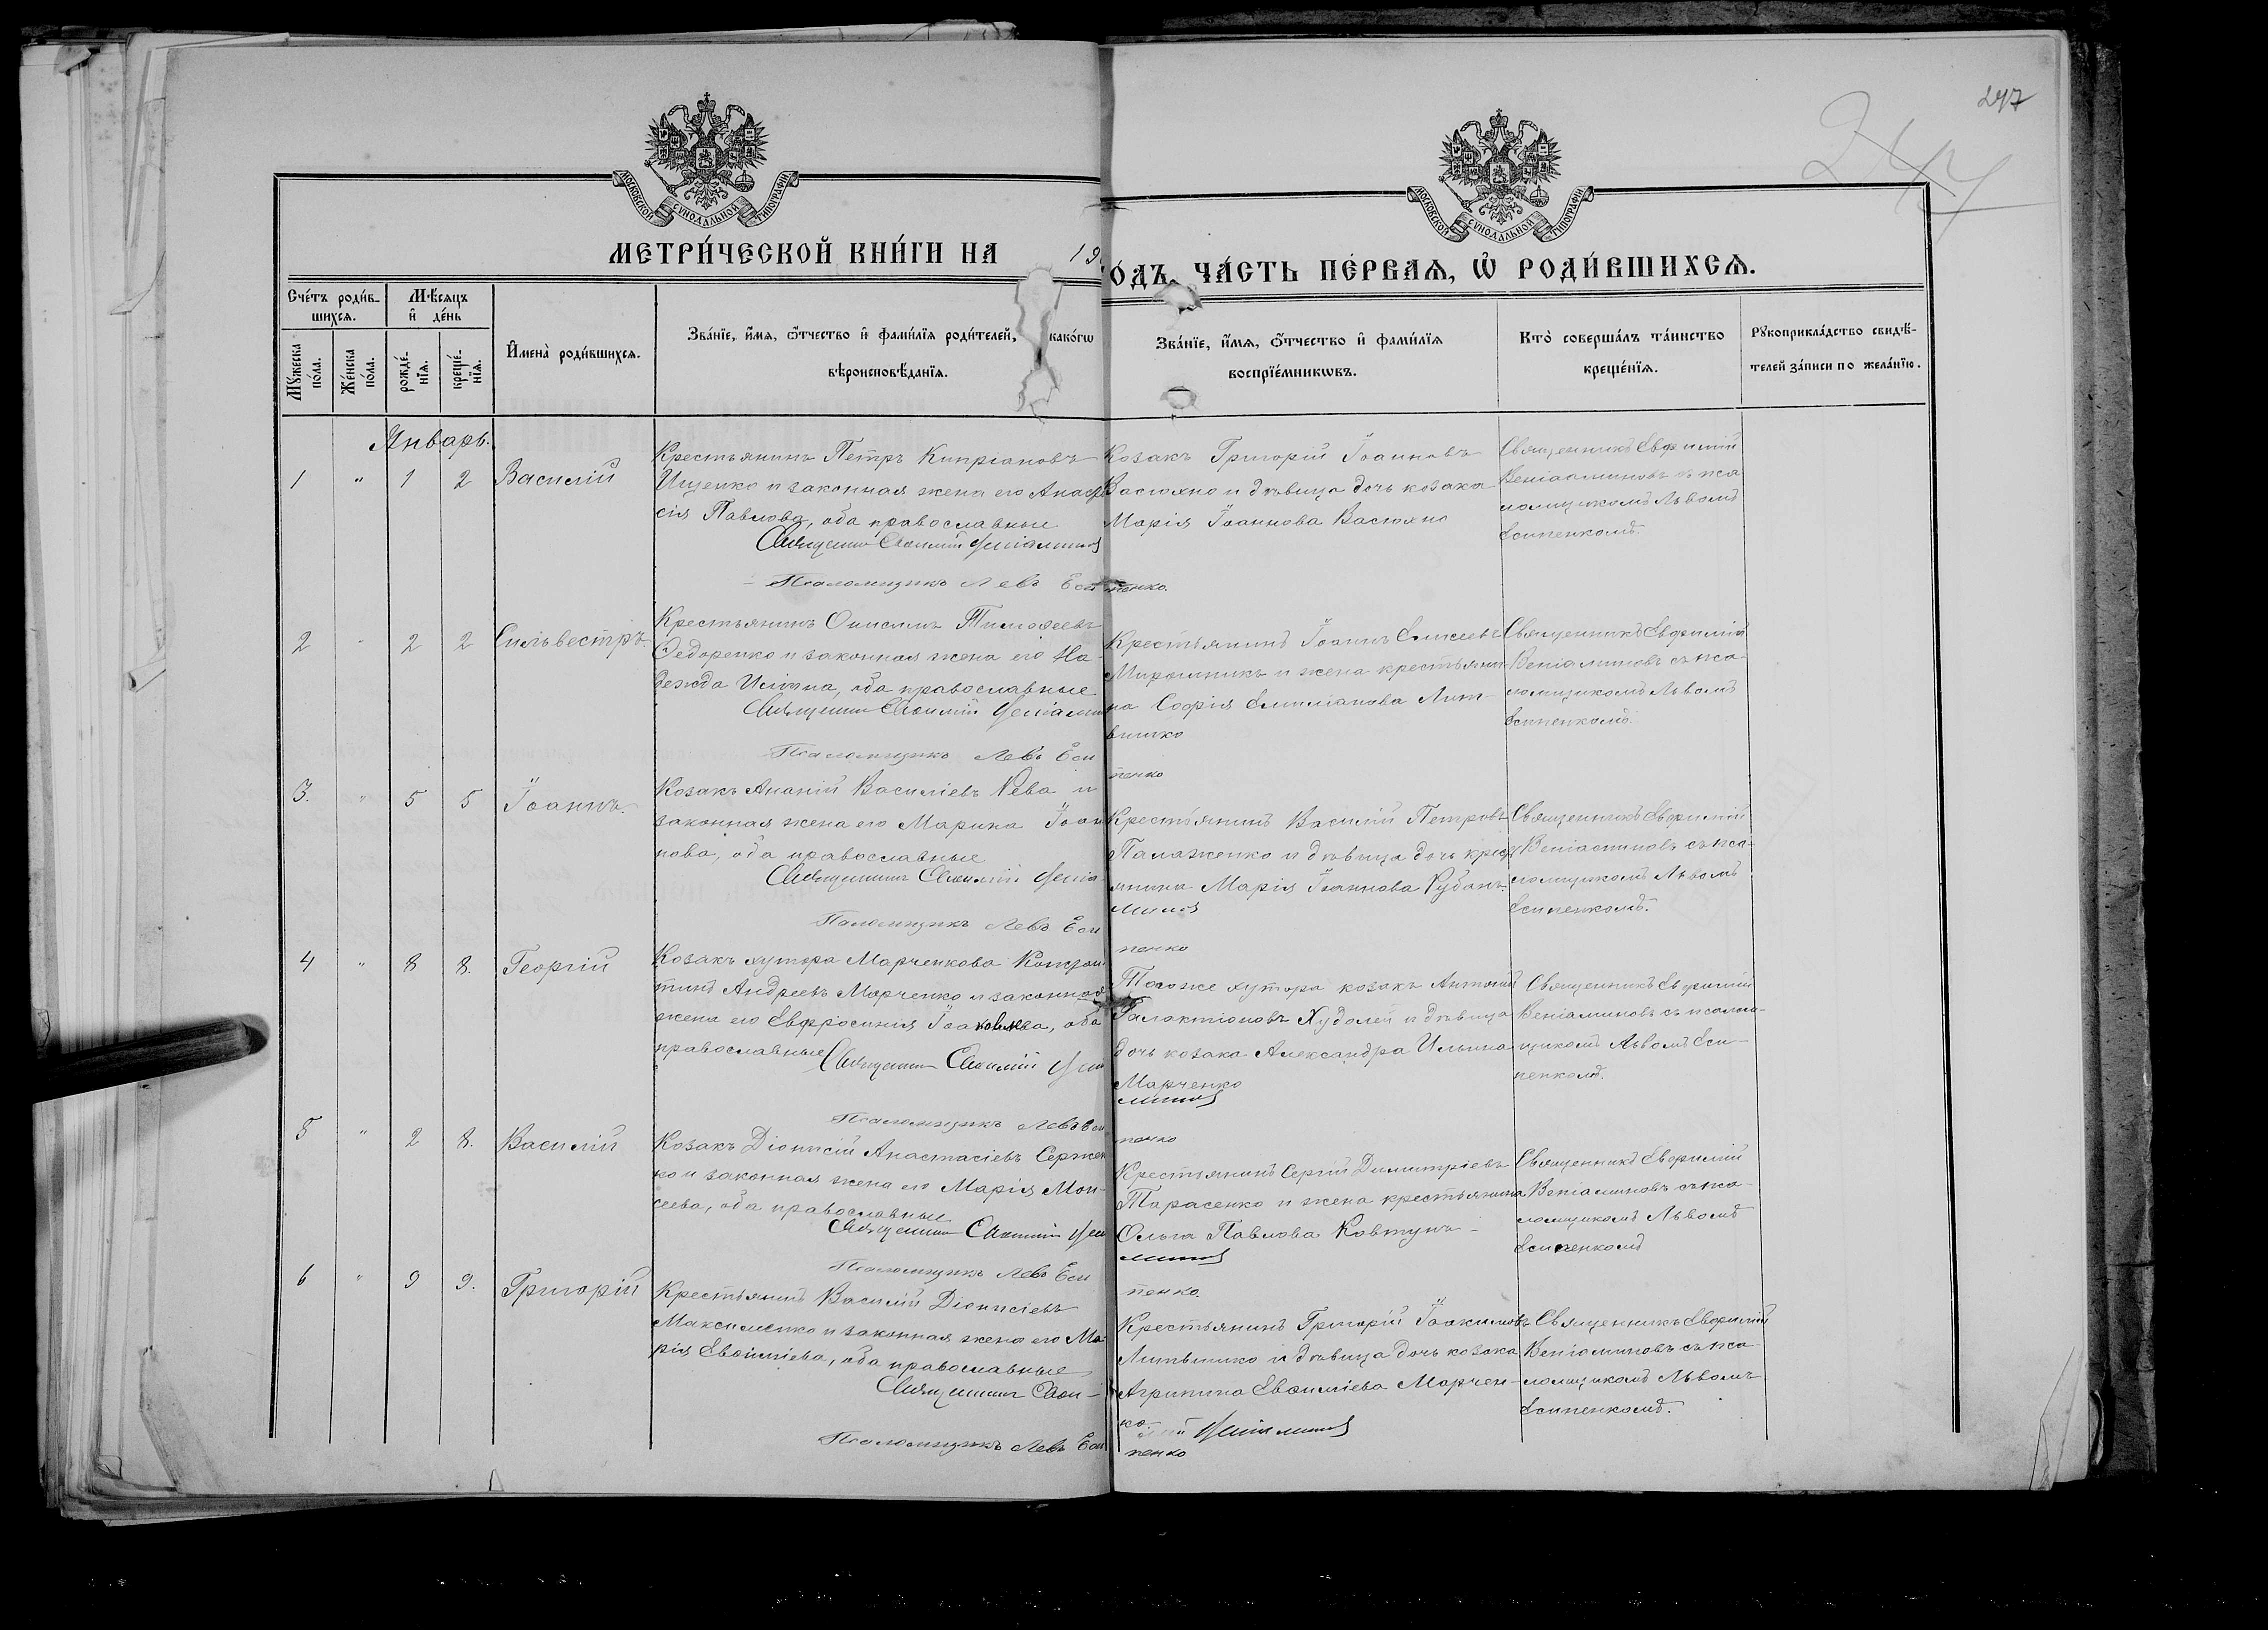 247
244
МОСКОВСКОЙ СУНОДАЛЬНОЙ ТИПОГРАФІИ
МОСКОВСКОЙ СУНОДАЛЬНОЙ ТИПОГРАФІИ
МЕТРИ́ЧЕСКОЙ КНИ́ГИ НА 19
О́ДЪ, ЧА́СТЬ ПЕ́РВАѦ, Ѡ҆ РОДИ́ВШИХСѦ.
Сче́тъ роди́в-
шихсѧ.
Мѣ́сѧцъ
и҆ де́нь
Мꙋ́жеска
по́ла.
Же́нска
по́ла.
рожде́-
нїѧ.
креще́-
нїѧ.
И҆мена̀ роди́вшихсѧ.
Зва́нїе, и҆́мѧ, ѻ҆́тчество и҆ фами́лїѧ роди́телей, како́гѡ
вѣроисповѣ́данїѧ.
Зва́нїе, и҆́мѧ, ѻ҆́тчество и҆ фами́лїѧ
воспрїе́мникѡвъ.
Кто̀ соверша́лъ та́инство
креще́нїѧ.
Рꙋкоприкла́дство свидѣ́-
телей за́писи по жела́нїю.
Январь.
1 " 1 2 Василій
Крестьянинъ Петръ Кипріановъ
Ищенко и законная жена его Анаста
сія Павлова, оба православные
Священникъ Евѳимій Веніаминовъ
Псаломщикъ Левъ Еси пенко.
Козакъ Григорій Іоанновъ
Васюхно и дѣвица дочь козака
Марія Іоаннова Васюхно
Священникъ Евфимій
Веніаминовъ съ пса
ломщикомъ Львомъ
Есипенкомъ.
2 " 2 2 Сильвестръ.
Крестьянинъ Онисимъ Тимоѳеевъ
Ѳедоренко и законная жена его На-
дежда Ильина, оба православные
Священникъ Евѳимій Веніамин
Псаломщикъ Левъ Еси
пенко
Крестьянинъ Іоаннъ Елисеевъ
Мирошникъ и жена крестьяни-
на Софія Емиліанова Лит-
винко
Священникъ Евфимій
Веніаминовъ съ пса-
ломщикомъ Львомъ
Есипенкомъ.
3. " 5 5 Іоаннъ.
Козакъ Ананій Василіевъ Рева и
законная жена его Марина Іоан
нова, оба православные
Священникъ Евѳимій Веніа
миновъ
Псаломщикъ Левъ Еси
пенко
Крестьянинъ Василій Петровъ
Палаженко и дѣвица дочь крест
янина Марія Іоаннова Рубанъ.
Священникъ Евфимій
Веніаминовъ съ пса-
ломщикомъ Львомъ
Есипенкомъ.
4 " 8 8. Георгій
Козакъ хутора Марченкова Констан
тинъ Андреевъ Марченко и законная
жена его Евфросинія Іаковлева, оба
православные Священникъ Евѳимій Веніа
миновъ
Псаломщикъ Левъ Еси
пенко
Того же хутора козакъ Антоній
Галактіоновъ Худолей и дѣвица
дочь козака Александра Ильина
Марченко
Священникъ Евфимій
Веніаминовъ съ псалом-
щикомъ Львомъ Еси-
пенкомъ.
5 " 2 8. Василій
Козакъ Діонисій Анастасіевъ Сержен
ко и законная жена его Марія Мои-
сеева, оба православные
Священникъ Евѳимій Веніа
миновъ
Псаломщикъ Левъ Еси
пенко.
Крестьянинъ Сергій Димитріевъ
Тарасенко и жена крестьянина
Ольга Павлова Ковтунъ
Священникъ Евфимій
Веніаминовъ съ пса-
ломщикомъ Львомъ
Есипенкомъ
6 " 9 9. Григорій
Крестьянинъ Василій Діонисіевъ
Максименко и законная жена его Ма
рія Евѳиміева, оба православные
Священникъ Евѳи-
мій Веніаминовъ
Псаломщикъ Левъ Еси
пенко
Крестьянинъ Григорій Іоакимовъ
Литвинко и дѣвица дочь козака
Агрипина Евѳиміева Марчен-
ко.
Священникъ Евфимій
Веніаминовъ съ пса
ломщикомъ Львомъ
Есипенкомъ.